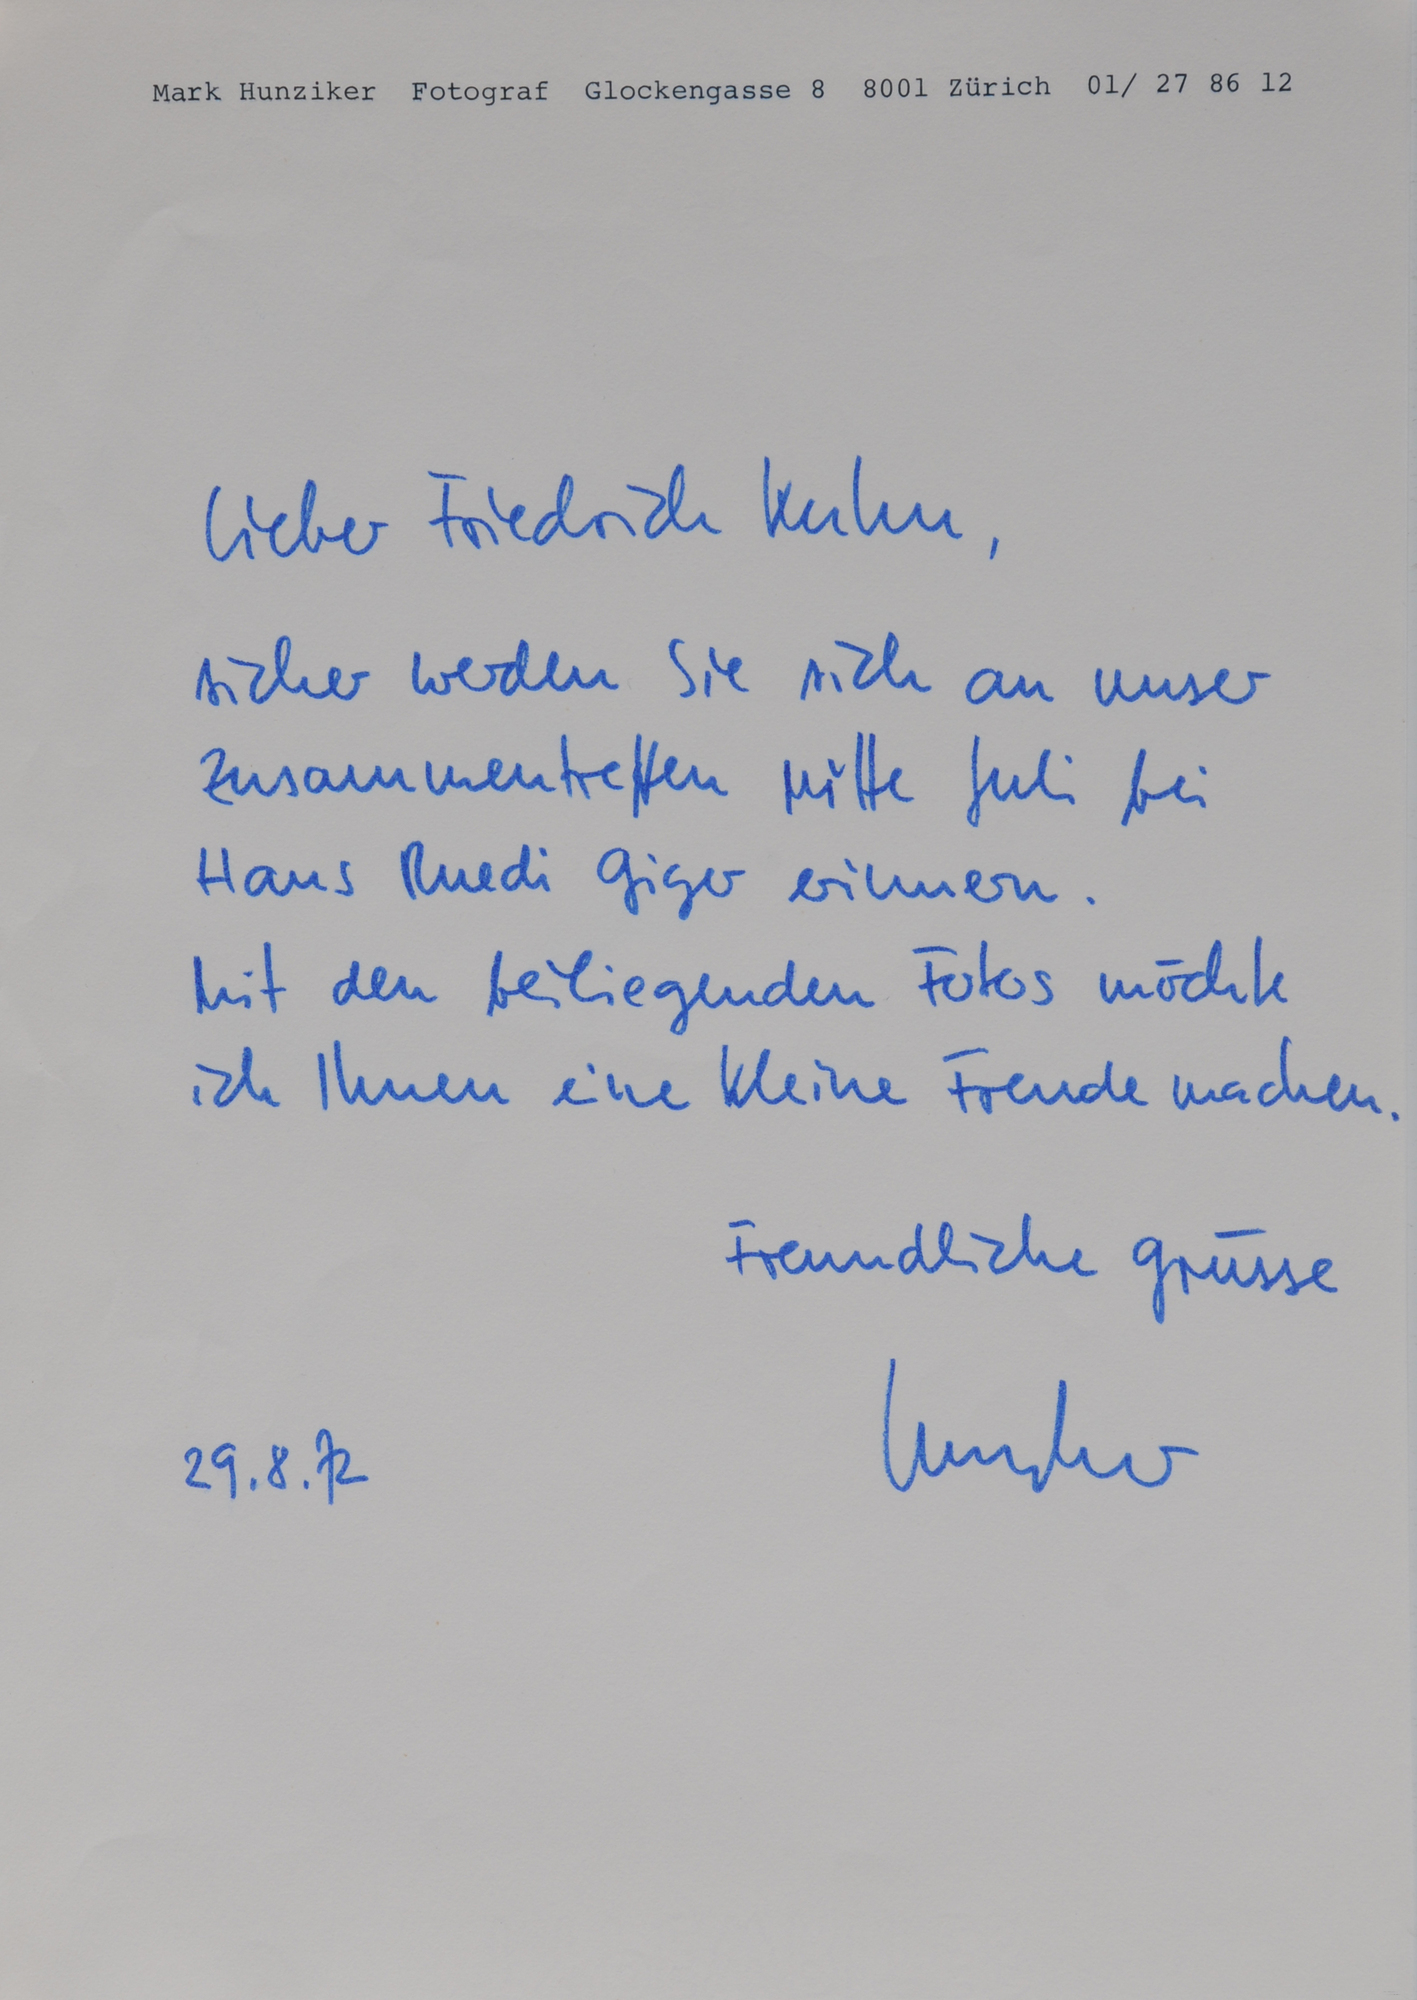 Mark Hunziker Fotograf Glockengasse 8 8001 Zürich 01/ 27 86 12
Lieber Friedrich Kuhn,
sicher werden Sie sich an unser
Zusammentreffen Mitte Juli bei
Hans Ruedi Giger erinnern.
Mit den beiliegenden Fotos möchte
ich Ihnen eine kleine Freude machen.
Freundliche Grüsse
Hunziker
29.8.72